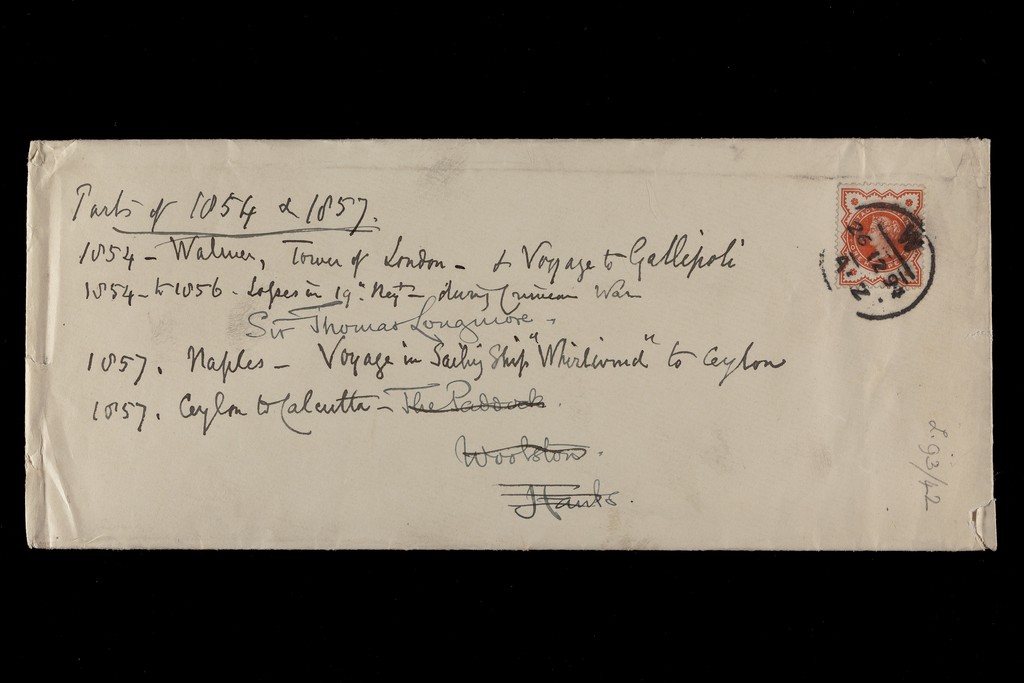 Parts of 1854 & 1857.
1854 - Walmer, Tower of London - & Voyage to Gallipoli
1854 - to 1856 - Losses in 19th Regt - during Crimean War
Sir Thomas Longmore.
1857. Naples - Voyage in Sailing Ship "Whirlwind" to Ceylon
1857. Ceylon to Calcutta - The Paddock.
Woolston.
Hants.
W
12
AU 2
94
L.93/42